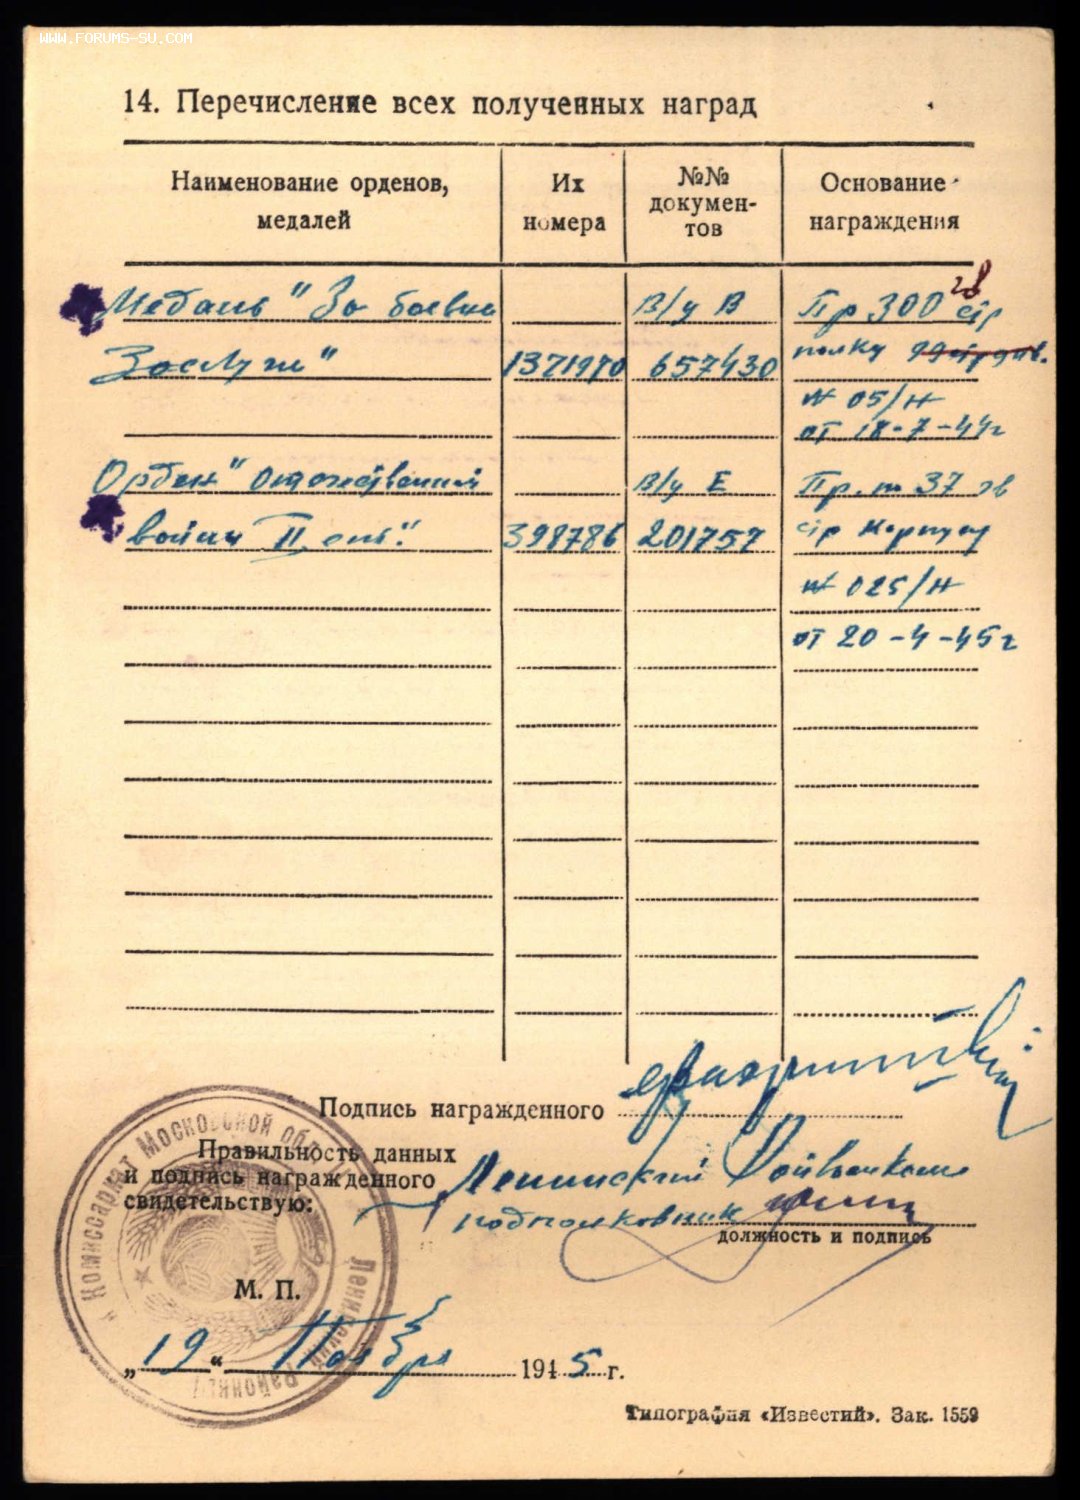 WWW.FORUMS-SU.COM
14. Перечисление всех полученных наград
Наименование орденов, медалей
Их номера
№№ докумен-тов
Основание награждения
Медаль "За боевые
Заслуги"
1371970
В/у В
657430
Пр 300 гв стр
полку 99 стр див.
№ 05/н
от 18-7-44г
Орден "Отечественной
войны II ст."
398786
В/у Е
201757
Пр. 37 гв
стр корпусу
№ 025/н
от 20-4-45г
Подпись награжденного
Правильность данных
и подпись награжденного
свидетельствую:
Ленинский Райвоенком
подполковник
должность и подпись
М. П.
Комиссариат Московской обл
Ленинский Районный
„19“ Ноября 1945 г.
Типография «Известий». Зак. 1559